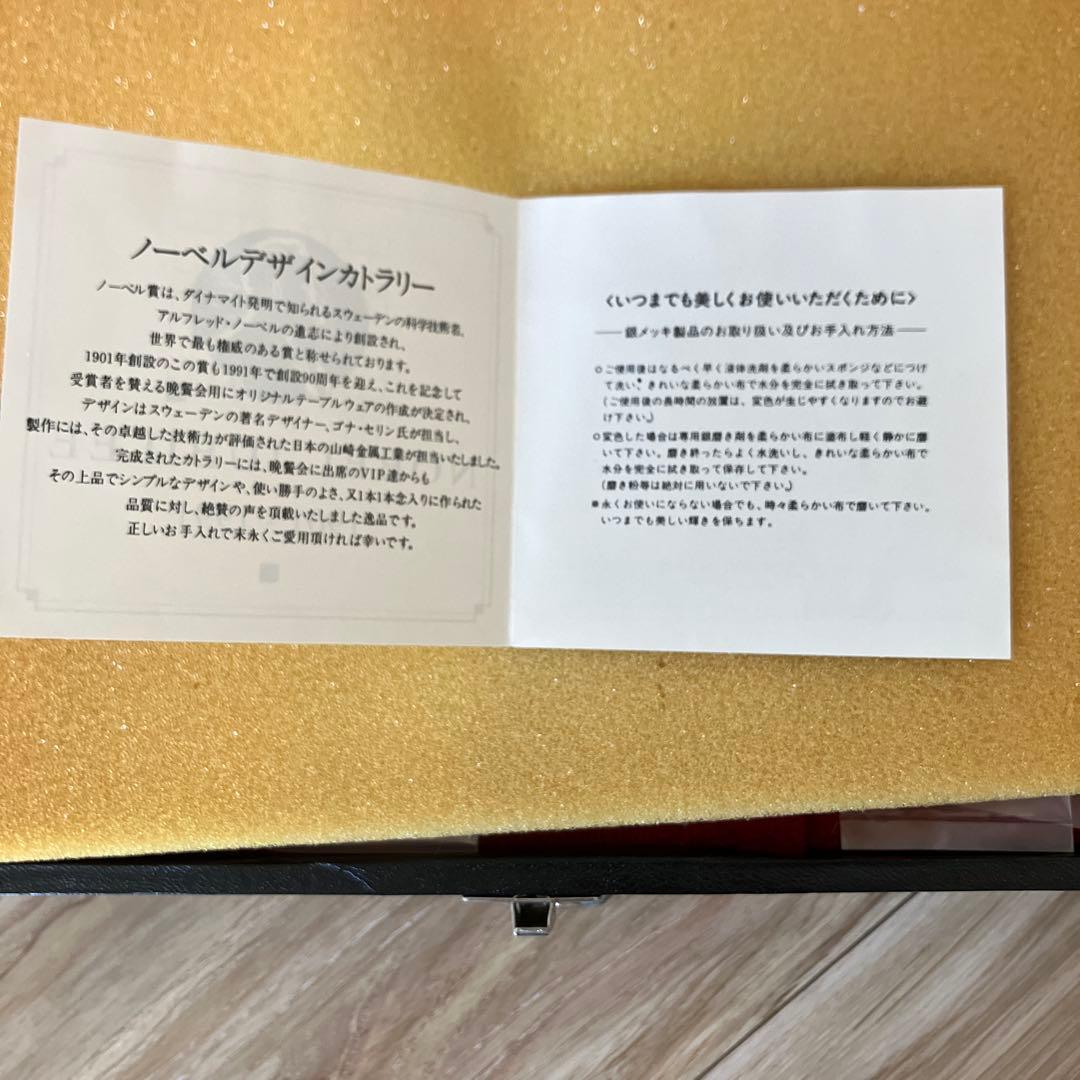 ノーベルデザインカトラリー
ノーベル賞は、ダイナマイト発明で知られるスウェーデンの科学技術者、
アルフレッド・ノーベルの遺志により創設され、
世界で最も権威のある賞と称せられております。
1901年創設のこの賞も1991年で創設90周年を迎え、これを記念して
受賞者を讃える晩餐会用にオリジナルテーブルウェアの作成が決定され、
デザインはスウェーデンの著名デザイナー、ゴナ・セリン氏が担当し、
製作には、その卓越した技術力が評価された日本の山崎金属工業が担当いたしました。
完成されたカトラリーには、晩餐会に出席のVIP達からも
その上品でシンプルなデザインや、使い勝手のよさ、又1本1本念入りに作られた
品質に対し、絶賛の声を頂載いたしました逸品です。
正しいお手入れで末永くご愛用頂ければ幸いです。
〈いつまでも美しくお使いいただくために〉
―銀メッキ製品のお取り扱い及びお手入れ方法―
○ご使用後はなるべく早く液体洗剤を柔らかいスポンジなどにつけ
て洗い、きれいな柔らかい布で水分を完全に拭き取って下さい。
(ご使用後の長時間の放置は、変色が生じやすくなりますのでお避
け下さい。)
○変色した場合は専用銀磨き剤を柔らかい布に塗布し軽く静かに磨
いて下さい。磨き終ったらよく水洗いし、きれいな柔らかい布で
水分を完全に拭き取って保存して下さい。
(磨き粉等は絶対に用いないで下さい。)
※永くお使いにならない場合でも、時々柔らかい布で磨いて下さい。
いつまでも美しい輝きを保ちます。